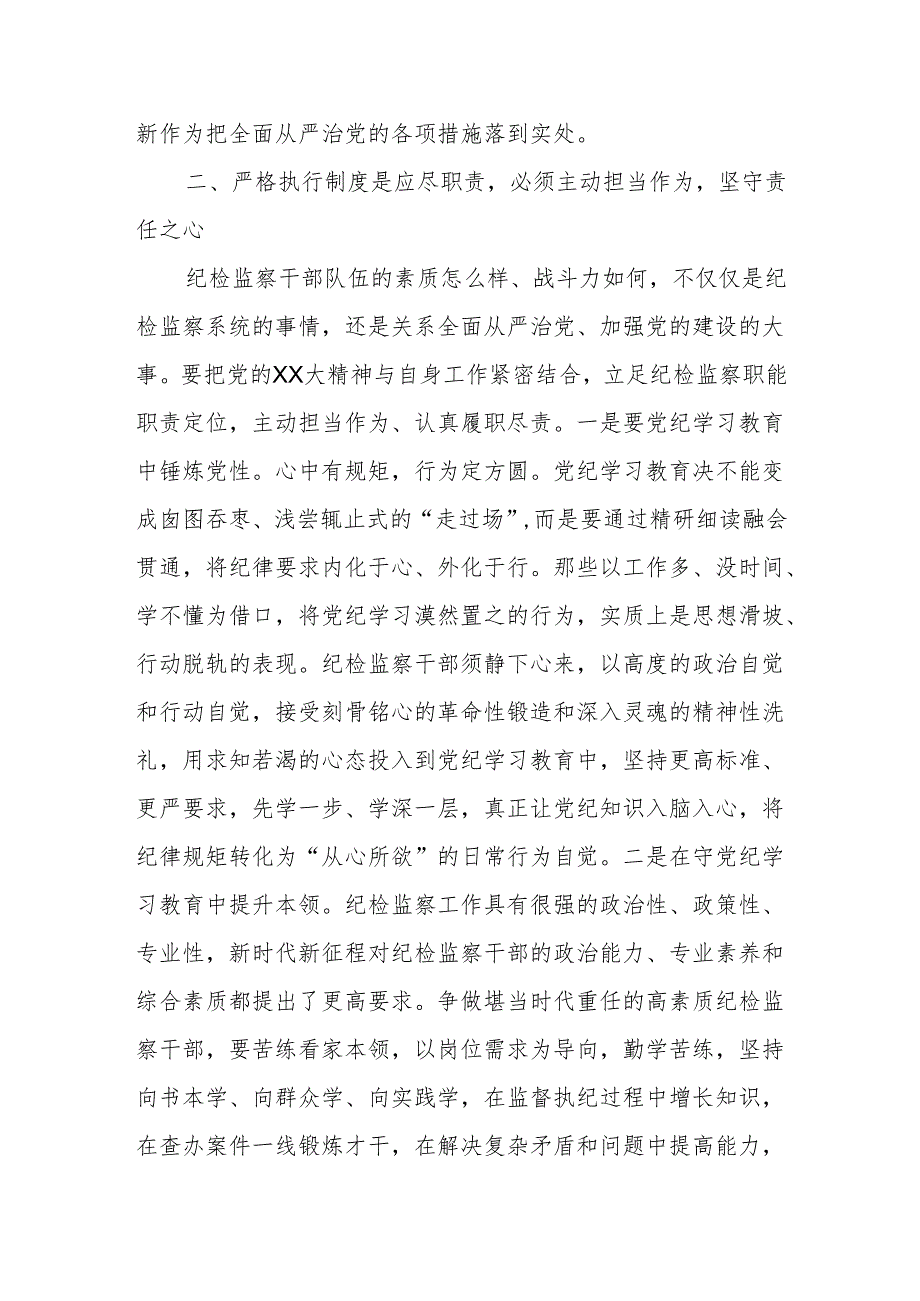 新作为把全面从严治党的各项措施落到实处。
二、严格执行制度是应尽职责，必须主动担当作为，坚守责
任之心
纪检监察干部队伍的素质怎么样、战斗力如何，不仅仅是纪
检监察系统的事情，还是关系全面从严治党、加强党的建设的大
事。要把党的XX大精神与自身工作紧密结合，立足纪检监察职能
职责定位，主动担当作为、认真履职尽责。一是要党纪学习教育
中锤炼党性。心中有规矩，行为定方圆。党纪学习教育决不能变
成囱图吞枣、浅尝辄止式的“走过场”,而是要通过精研细读融会
贯通，将纪律要求内化于心、外化于行。那些以工作多、没时间、
学不懂为借口，将党纪学习漠然置之的行为，实质上是思想滑坡、
行动脱轨的表现。纪检监察干部须静下心来，以高度的政治自觉
和行动自觉，接受刻骨铭心的革命性锻造和深入灵魂的精神性洗
礼，用求知若渴的心态投入到党纪学习教育中，坚持更高标准、
更严要求，先学一步、学深一层，真正让党纪知识入脑入心，将
纪律规矩转化为“从心所欲”的日常行为自觉。二是在守党纪学
习教育中提升本领。纪检监察工作具有很强的政治性、政策性、
专业性，新时代新征程对纪检监察干部的政治能力、专业素养和
综合素质都提出了更高要求。争做堪当时代重任的高素质纪检监
察干部，要苦练看家本领，以岗位需求为导向，勤学苦练，坚持
向书本学、向群众学、向实践学，在监督执纪过程中增长知识，
在查办案件一线锻炼才干，在解决复杂矛盾和问题中提高能力，